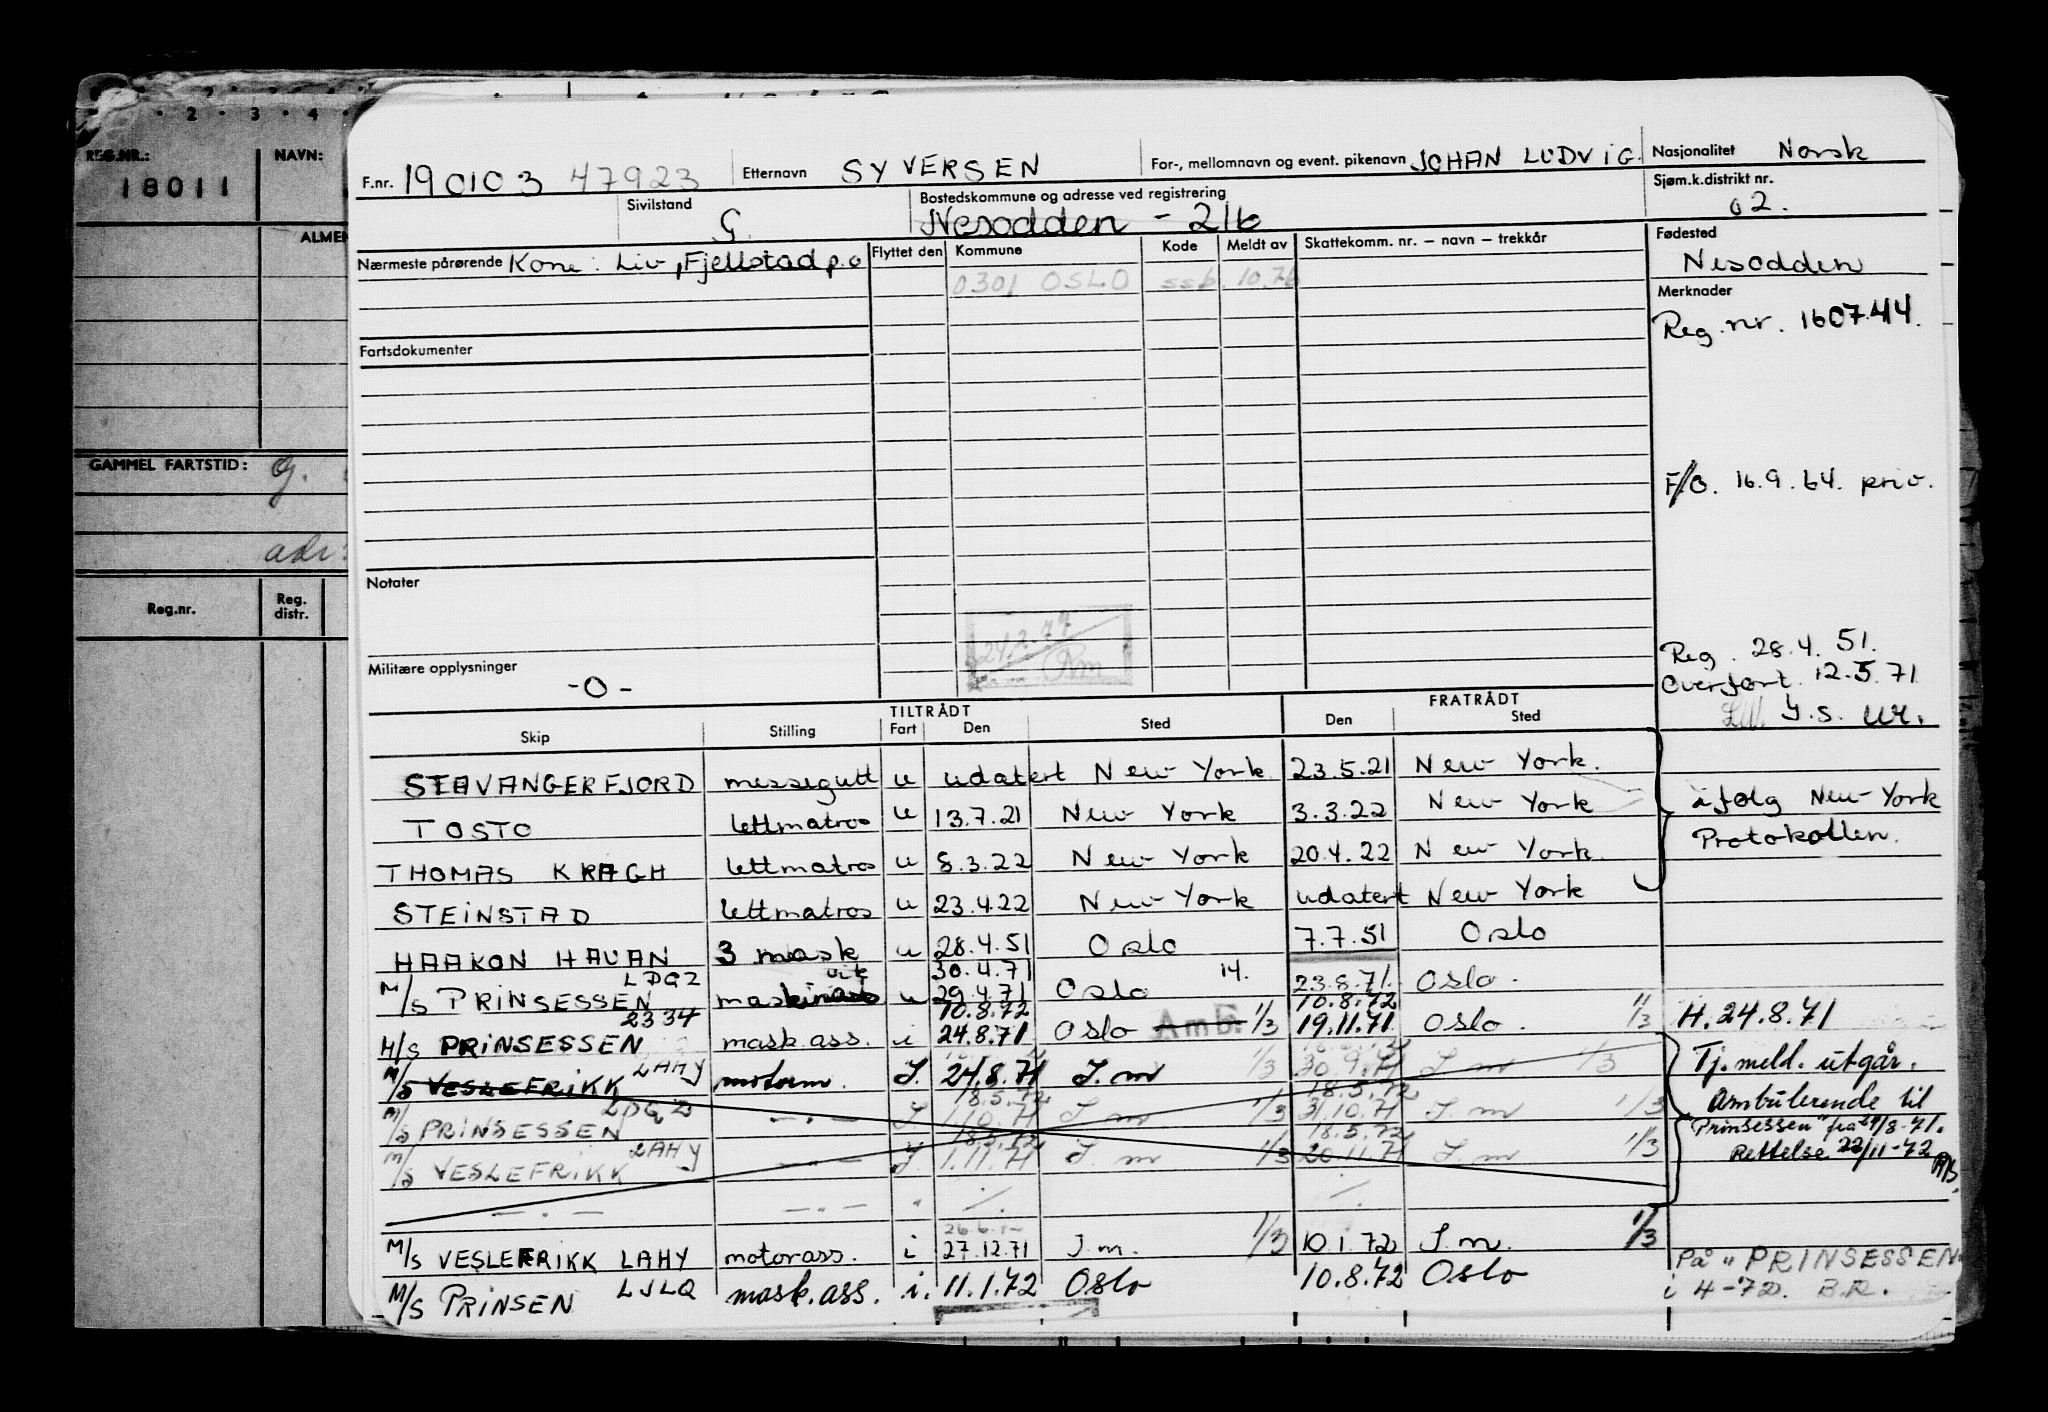 REG.NR.: NAVN:
18011
ALMEN
GAMMEL FARTSTID:
adr
Reg.nr. Reg. distr.
F.nr. 190103 47923 Etternavn SYVERSEN For-, mellomnavn og event. pikenavn JOHAN LUDVIG. Nasjonalitet Norsk
Sivilstand G. Bostedskommune og adresse ved registrering Nesodden - 216 Sjøm.k.distrikt nr. 02.
Nærmeste pårørende Kone: Liv, Fjellstad p.o Flyttet den Kommune Kode Meldt av Skattekomm. nr. – navn – trekkår Fødested
0301 OSLO ssb. 10.76 Nesodden
Merknader
Reg. nr. 160744.
Fartsdokumenter
F/O. 16.9.64. priv.
Notater
24.2.77
Rm
Militære opplysninger
-0-
Reg. 28.4.51.
Overført. 12.5.71
TILTRÅDT FRATRÅDT
Skip Stilling Fart Den Sted Den Sted
STAVANGERFJORD messegutt u udatert New York 23.5.21 New York.
TOSTO lettmatros u 13.7.21 New York 3.3.22 New York
i følg New York
Protokollen.
THOMAS KRAGH lettmatros u 8.3.22 New York 20.4.22 New York.
STEINSTAD lettmatros u 23.4.22 New York udatert New York
HAAKON HAUAN 3 mask u 28.4.51 Oslo 7.7.51 Oslo
30.4.71
M/S PRINSESSEN LDQZ u 29.4.71 Oslo 14. 23.8.71. Oslo.
2334 10.8.72 10.8.72
M/S PRINSESSEN mask.ass. i 24.8.71 Oslo Amb. 1/3 19.11.71 Oslo. 1/3 H. 24.8.71
M/S VESLEFRIKK LAHY motorm. I. 24.8.71 I.m 1/3 30.9.71 I.m 1/3
Tj. meld. utgår.
18.5.72 18.5.72
M/S PRINSESSEN LDQZ —"— I 1.10.71 I.m 1/3 31.10.71 I.m 1/3
Ambulerende til
"Prinsessen" fra 24/8-71.
18.5.72 18.5.72
M/S VESLEFRIKK LAHY —"— I. 1.11.71 I.m 1/3 20.11.71 I.m 1/3
Rettelse 22/11-72
—"— —"— "
M/S VESLEFRIKK LAHY motorass. i 27.12.71 I.m. 1/3 10.1.72 I.m. 1/3
På "PRINSESSEN"
M/S PRINSEN LJLQ mask.ass. i. 11.1.72 Oslo 10.8.72 Oslo
i H-72. B.R.